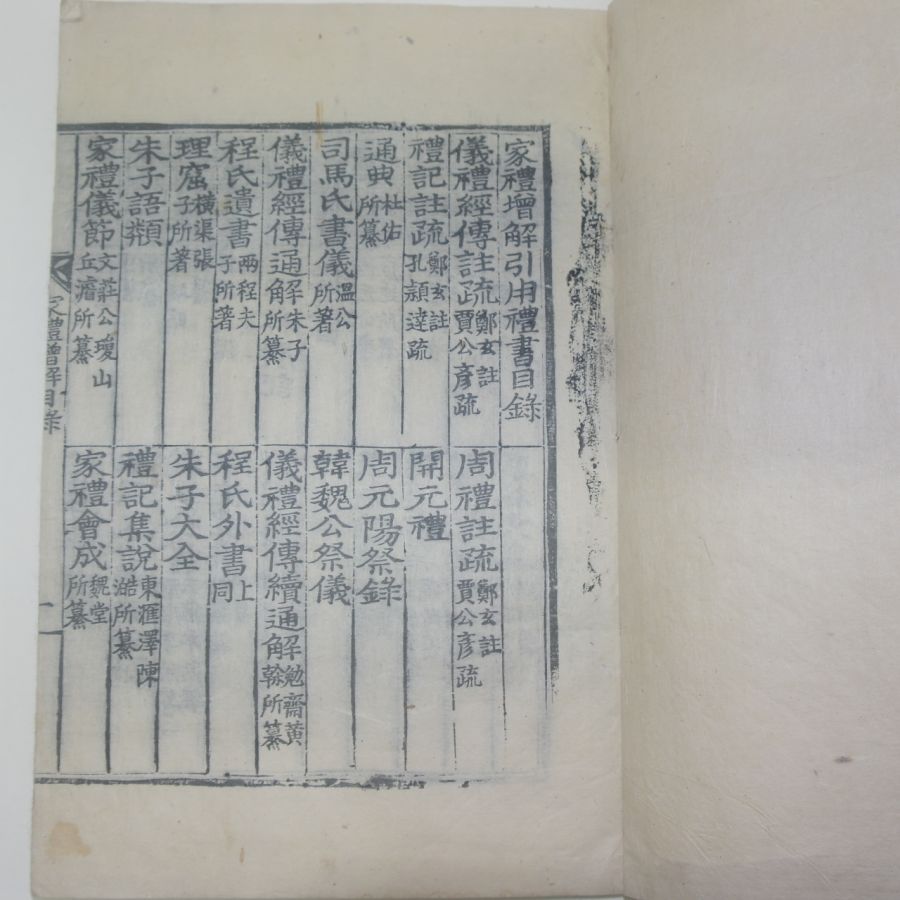 家禮增解引用禮書目錄
儀禮經傳註疏 鄭玄註賈公彦疏 周禮註疏 鄭玄註賈公彦疏
禮記註疏 鄭玄註孔穎達疏 開元禮
通典 杜佑所纂 周元陽祭錄
司馬氏書儀 溫公所著 韓魏公祭儀
儀禮經傳通解 朱子所纂 儀禮經傳續通解 勉齋黃榦所纂
程氏遺書 兩程夫子所著 程氏外書 上同
理窟 橫渠張子所著 朱子大全
朱子語類 禮記集說 東滙澤陳澔所纂
家禮儀節 文莊公瓊山丘濬所纂 家禮會成 魏堂所纂
家禮增解目錄 一